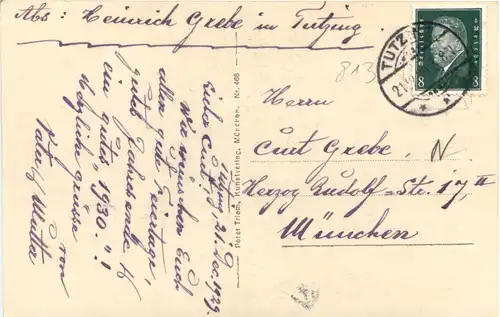 Abs: Heinrich Grebe in Tutzing.
Tutzing, 21. Dez. 1929.
Lieber Curt!
Wir wünschen Euch
allen gute Feiertage,
gutes Jahresende &
ein gutes "1930."!
Herzliche Grüsse
von
Vater & Mutter
Peter Triem, Kunstverlag, München. Nr. 466
813
Herrn
Curt Grebe,
N
Herzog Rudolf-Str. 17, II
München
TUTZ
21
8
8